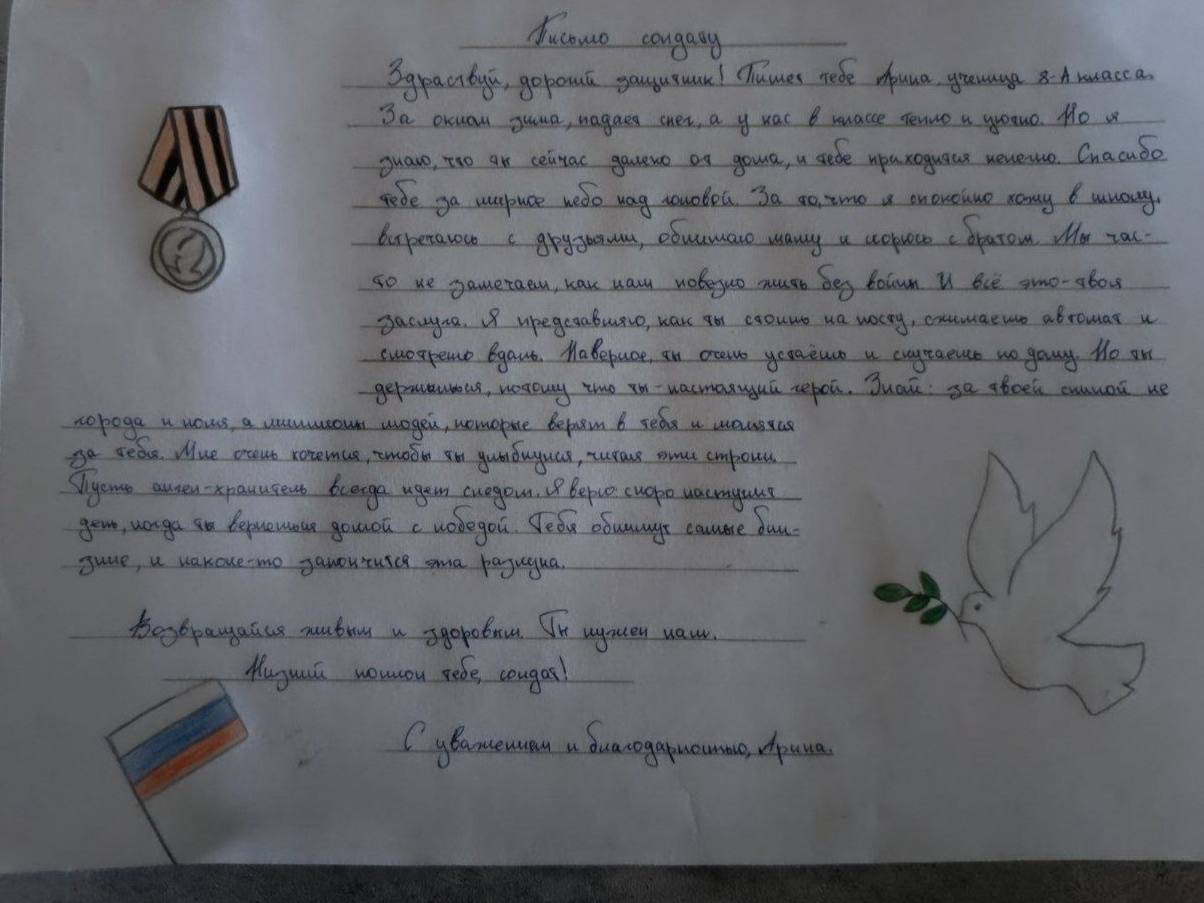 Письмо солдату
Здраствуй, дорогой защитник! Пишет тебе Арина, ученица 8-А класса.
За окном зима, падает снег, а у нас в классе тепло и уютно. Но я
знаю, что ты сейчас далеко от дома, и тебе приходится нелегко. Спасибо
тебе за мирное небо над головой. За то, что я спокойно хожу в школу,
встречаюсь с друзьями, обнимаю маму и ссорюсь с братом. Мы час-
то не замечаем, как нам повезло жить без войны И всё это-твоя
заслуга. Я представляю, как ты стоишь на посту, сжимаешь автомат и
смотришь вдаль. Наверное, ты очень устаёшь и скучаешь по дому. Но ты
держишься, потому что ты-настоящий герой. Знай: за твоей спиной не
города и поля, а миллионы людей, которые верят в тебя и молятся
за тебя. Мне очень хочется, чтобы ты улыбнулся, читая эти строки.
Пусть ангел-хранитель всегда идет следом. Я верю скоро наступит
день, когда ты вернешься домой с победой. Тебя обнимут самые бли-
зкие, и наконе-то закончится эта разлука.
Возвращайся живым и здоровым. Ты нужен нам.
Низкий поклон тебе, солдат!
С уважением и благодарностью, Арина.